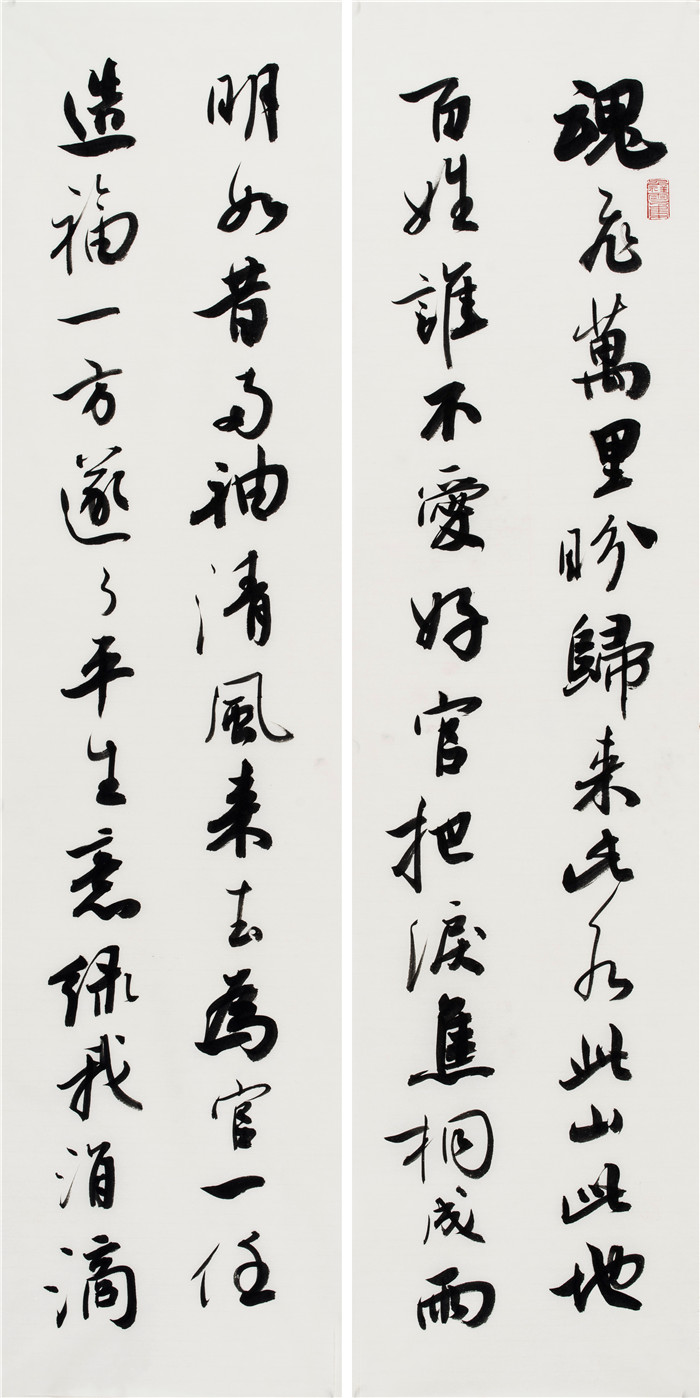 魂飛萬里盼歸来此水此山此地
百姓誰不愛好官把淚焦桐成雨
明如昔两袖清風来去為官一任
造福一方遂了平生意緑我涓滴